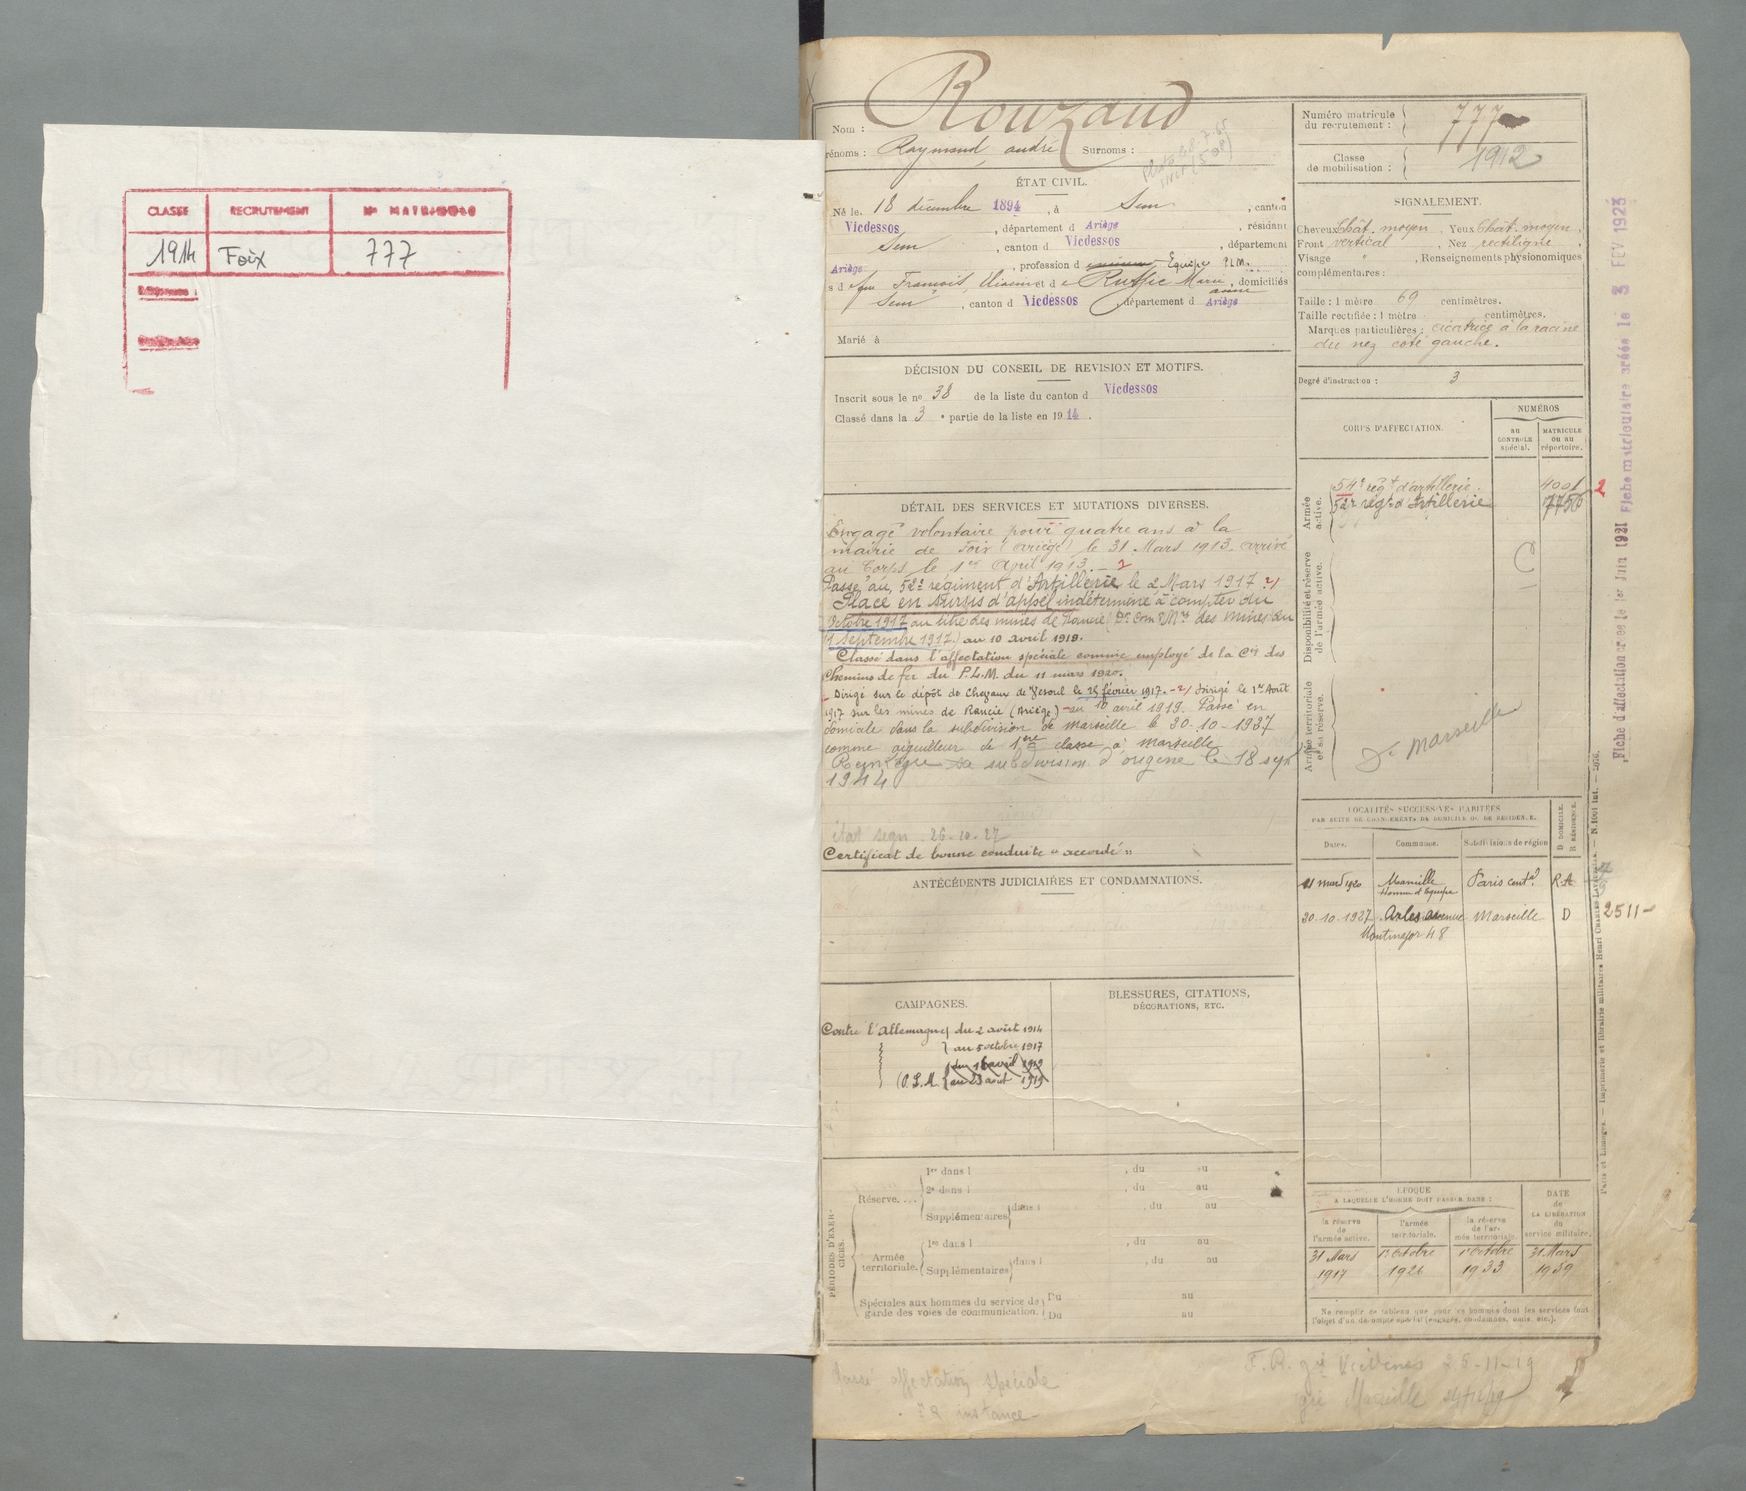 CLASSE RECRUTEMENT No MATRICULE
1914 Foix 777
Nom : Rouzaud
rénoms : Raymond, andré Surnoms :
ÉTAT CIVIL.
Né le 18 décembre 1894, à Sem, canton
Vicdessos, département d Ariège, résidant
Sem, canton d Vicdessos, département
Ariège, profession d Equipe P.L.M.
s d feu François, et d e Ruffié Marie, domiciliés
anne
Sem, canton d Vicdessos, département d Ariège
Marié à
DÉCISION DU CONSEIL DE REVISION ET MOTIFS.
Inscrit sous le no 38 de la liste du canton d Vicdessos
Classé dans la 3 e partie de la liste en 1914.
DÉTAIL DES SERVICES ET MUTATIONS DIVERSES.
Engagé volontaire pour quatre ans à la
mairie de Foix (ariège) le 31 Mars 1913. arrivé
au Corps le 1er April 1913. 2
Passé au 52e régiment d'Artillerie le 2 Mars 1917. 2/
Placé en sursis d'appel indéterminé à compter du
Octobre 1917 au titre des mines de Rancié des mines du
1 Septembre 1917.) au 10 avril 1919.
Classé dans l'affectation spéciale comme employé de la Cie des
Chemins de fer du P.L.M. du 11 mars 1920.
Dirigé sur le dépôt de Chevaux de Vesoul le 25 février 1917. - 2/ Dirigé le 1er Août
1917 sur les mines de Rancié (Ariège) - au 10 avril 1919. Passé en
domicile dans la subdivision de Marseille le 30-10-1927
comme aiguilleur de 1ère classe à Marseille
Réintégré sa subdivision d'origine le 18 sept
1944
état segn 26-10-27
Certificat de bonne conduite " accordé "
ANTÉCÉDENTS JUDICIAIRES ET CONDAMNATIONS.
CAMPAGNES.
Contre l'Allemagne du 2 août 1914
au 5 octobre 1917
du avril 1919
(P.L.M. au 23 août 1919
BLESSURES, CITATIONS,
DÉCORATIONS, ETC.
PÉRIODES D'EXERCICES.
Réserve....
1re dans l , du au
2e dans l , du au
Supplémentaires dans l , du au
Armée
territoriale.
1re dans l , du au
Supplémentaires dans l , du au
Spéciales aux hommes du service de Du au
garde des voies de communication. Du au
Numéro matricule
du recrutement : 777
Classe
de mobilisation : 1912
SIGNALEMENT.
Cheveux Chât. moyen, Yeux Chât. moyen,
Front vertical, Nez rectiligne,
Visage " , Renseignements physionomiques
complémentaires :
Taille : 1 mètre 69 centimètres.
Taille rectifiée : 1 mètre centimètres.
Marques particulières : cicatrice à la racine
du nez côté gauche.
Degré d'instruction : 3
CORPS D'AFFECTATION.
NUMÉROS
au
CONTROLE
spécial.
MATRICULE
ou au
répertoire.
Armée
active.
54e régt d'artillerie. 4001 2
52e régt d'Artillerie 7750
Disponibilité et réserve
de l'armée active.
C
Armée territoriale
et sa réserve.
Marseille
LOCALITÉS SUCCESSIVES HABITÉES
PAR SUITE DE CHANGEMENTS DE DOMICILE OU DE RÉSIDENCE.
Dates. Commune. Subdivisions de région D DOMICILE. R RÉSIDENCE.
11 mars 1920 Marseille Paris cental. R.A
Homme d'équipe
30.10.1927 Arles avenue Marseille D 2511-
Montmajor 48
EPOQUE
A LAQUELLE L'HOMME DOIT PASSER DANS :
la réserve
de
l'armée active.
l'armée
territoriale.
la réserve
de l'ar-
mée territoriale.
DATE
de
LA LIBÉRATION
du
service militaire.
31 Mars 1er Octobre 1er Octobre 31 Mars
1917 1926 1933 1939
Ne remplir ce tableau que pour les hommes dont les services font
l'objet d'un décompte spécial (engagés, condamnés, omis, etc.).
Paris et Limoges. — Imprimerie et librairie militaires Henri CHARLES-LAVAUZELLE. —
Fiche d'affectation créée le 1er Juin 1921 Fiche matriculaire créée le 3 FEV 1923
Classé affectation spéciale
instance
F. R. 25-11-19
Marseille